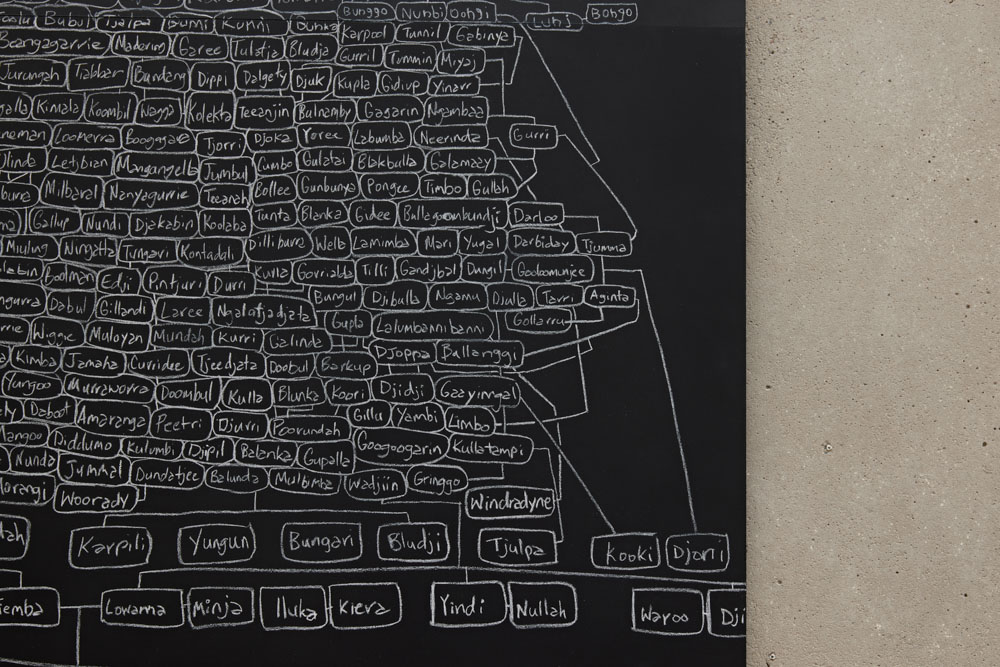 Bunggo Nunbi Dongi Lunj Bongo
Bubul Tjalpa Bumi Kunni
Karpool Tunnil Gabinya
Beangagarrie Madering Garee Tulstia Bludja Gurril Tummin Miyaj
Jurungah Tabbar Bundang Dippi Dalgety Djuk Kupla Gidiup Yinarr
Kimala Koombil Wagga Kolekta Teeanjin Balnamby Gagarin Ngambaa
Loomerra Boogagaee Tjorri Djoka Yoree Labumba Neerinda Gurri
Letjbian Mangangella Jumbul Cumbo Gulatai Blakbulla Galamaay
Milbaral Nanyagurrie Teearah Bollee Gunbunya Pongee Timbo Gullah
Gallup Nundi Djakabin Koolaba Tunta Blanka Gidee Darloo
Miuling Ningatta Tumari Kontadali Dillibarre Welb Lamimba Mari Yugal Darbiday Tjumma
Boolman Edji Pinturi Durri Kurla Gorrialda Tilli Gandjbal Dungil Gooloomunjee
Dabul Gillandi Laree Ngalatjadjata Bungul Djiballa Ngamu Djulla Tarri Aginta
Gollarru
Wiggie Muloyan Mundah Kurri Galinda Gupla Lalumbannibanni
Kimba Jamaha Curridee Tjeedjata Doobul Barkup Djoppa Ballanggi
Yungoo Murraworra Doombul Kulla Blunka Koori Djidji Gaayimgal
Daboot Amaranga Peetri Djurri Poorundah Gillu Yambi Limbo
Mangoo Diddumo Kulumbi Djipil Balanka Gupalla Googoogarin Kullatampi
Nunda Jummal Dundatjee Balunda Mulbimba Wadjiin Gringgo
Woorady Windradyne
Karpili Yungun Bungari Bludji Tjulpa Kooki Djorri
Lowanna Minja Iluka Kiera Yindi Nullah Waroo Dji